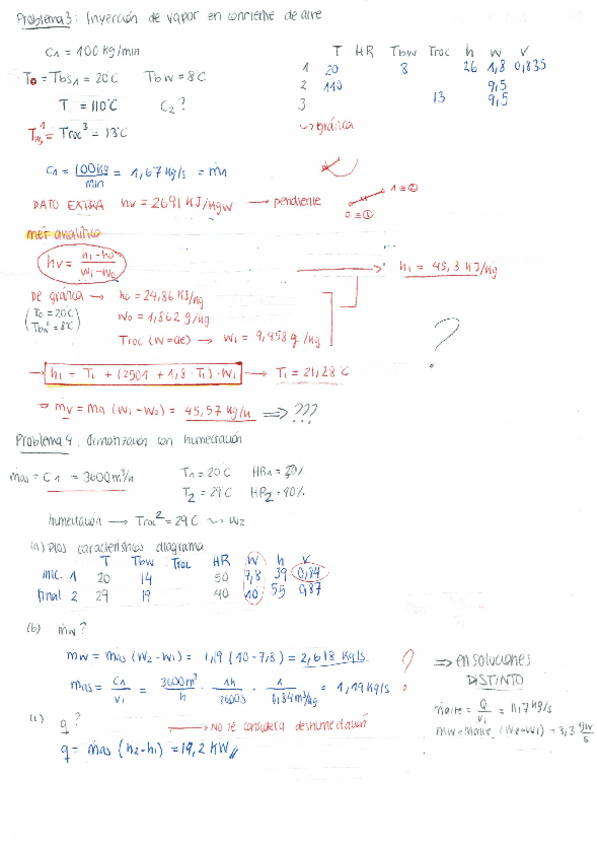 Problema 3: Inyección de vapor en corriente de aire
C1 = 100 kg/min
T HR Tbw Troc h w v
1 20 8 26 1,8 0,835
2 110 9,5
3 13 9,5
To = Tbs1 = 20°C Tbw = 8°C
T = 110°C C2?
Troc3 = 13°C
gráfica
C1 = 100 kg/min = 1,67 kg/s = m1
DATO EXTRA hv = 2691 KJ/kgw → pendiente
1 ≡ ②
0 ≡ ①
met analítico
hv = h1 - h0 / w1 - w0
h1 = 45,3 KJ/kg
De gráfica → h0 = 24,86 KJ/kg
(To = 20°C
Tbw = 8°C)
w0 = 1,862 g/kg
Troc (w=cte) → w1 = 9,458 g/kg
?
→ h1 = T1 + (2501 + 1,8 · T1) · w1 → T1 = 21,28°C
⇒ mv = ma (w1 - w0) = 45,57 kg/h ⇒ ???
Problema 4. climatización con humectación
mas = C1 = 3600 m³/h
T1 = 20°C HR1 = 50%
T2 = 29°C HR2 = 40%
humectación → Troc2 = 29°C w2
(a) Ptos característicos diagrama
T Tbw Troc HR w h v
inic. 1 20 14 50 7,8 39 0,84
final 2 29 19 40 10 55 0,87
(b) mw?
mw = mas (w2 - w1) = 1,19 (10 - 7,8) = 2,618 kg/s.
?
⇒ en soluciones
DISTINTO
mas = C1/v1 = 3600 m³/h · 1h/3600s · 1/0,84 m³/kg = 1,19 kg/s
maire = Q/v1 = 1,17 kg/s
mw = maire (w2 - w1) = 3,3 gw/s
(c) q?
→ No se considera deshumectación
q = mas (h2 - h1) = 19,2 KW